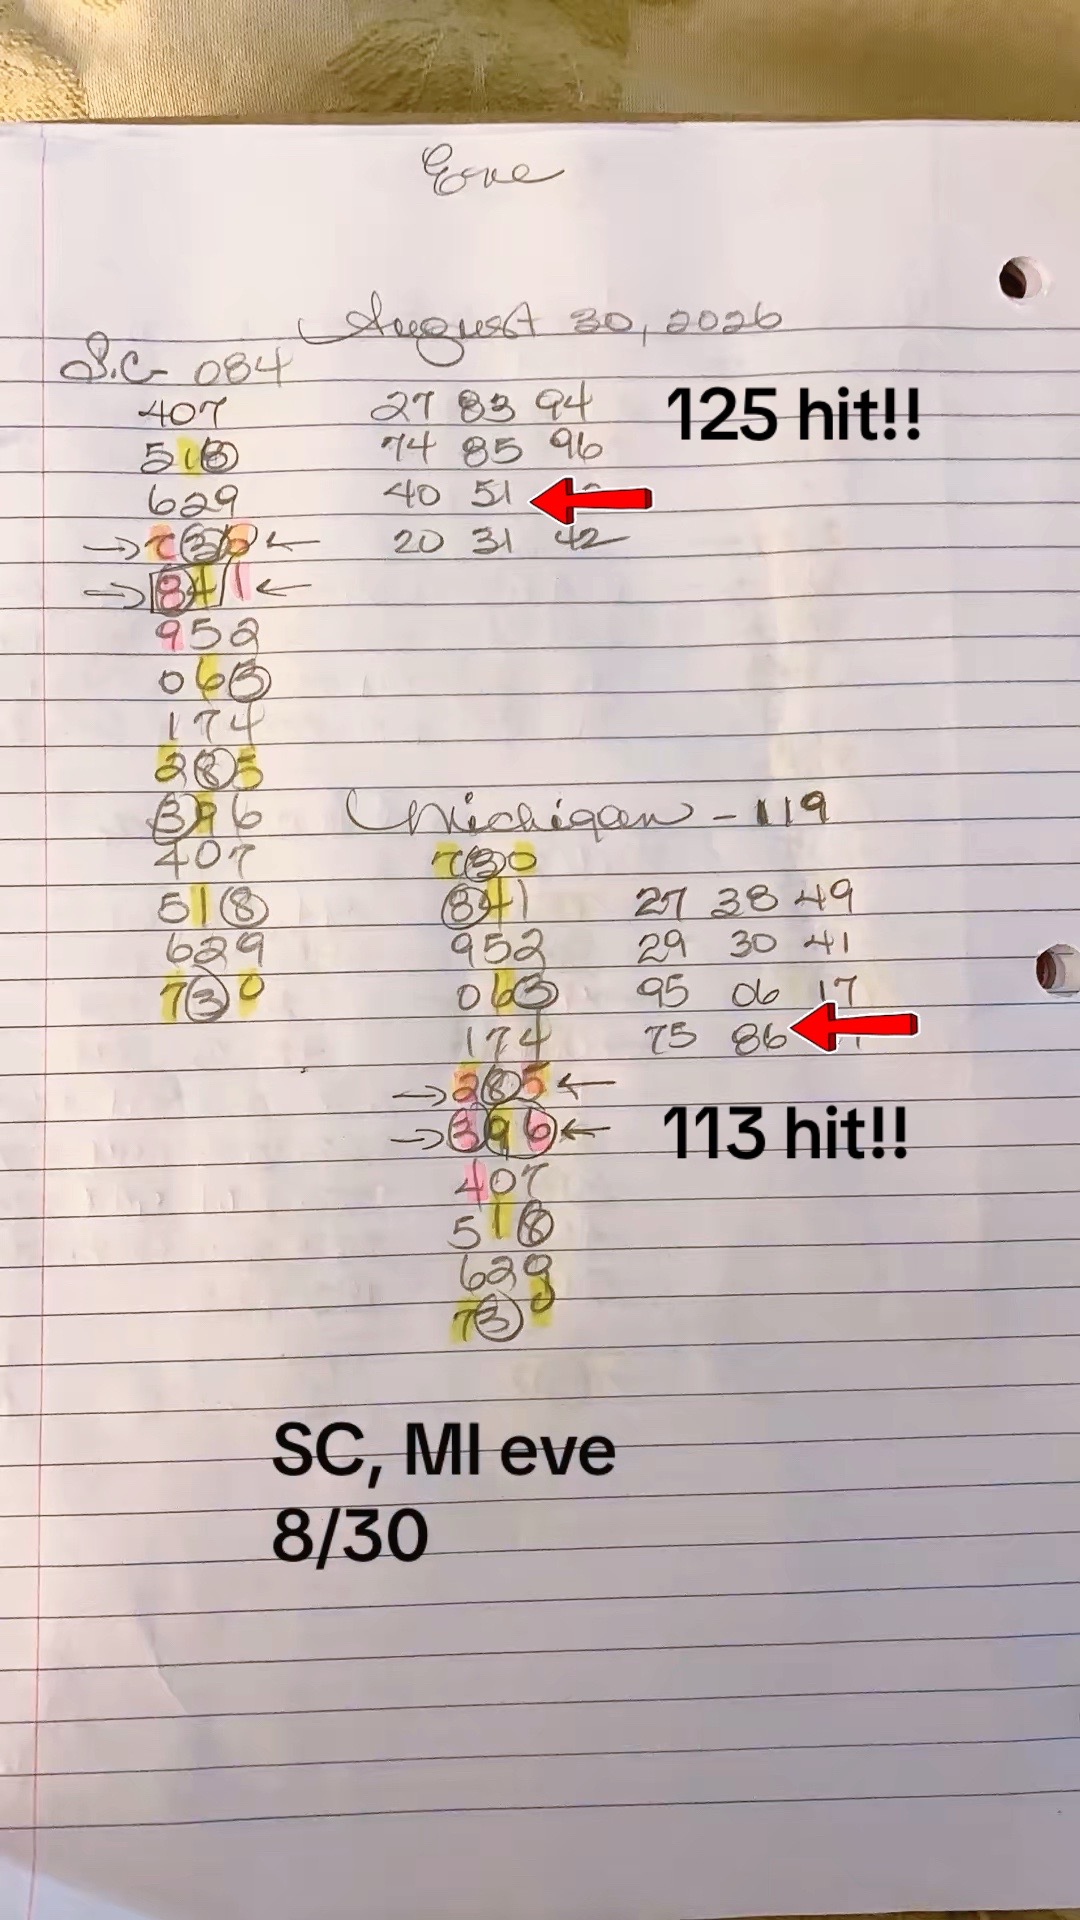 Eve
August 30, 2026
S.C - 084
407 27 83 94 125 hit!!
518 74 85 96
629 40 51
730 20 31 42
841
952
063
174
285
396 Michigan - 119
407 730
518 841 27 38 49
629 952 29 30 41
730 063 95 06 17
174 75 86
285
396 113 hit!!
407
518
629
730
SC, MI eve
8/30